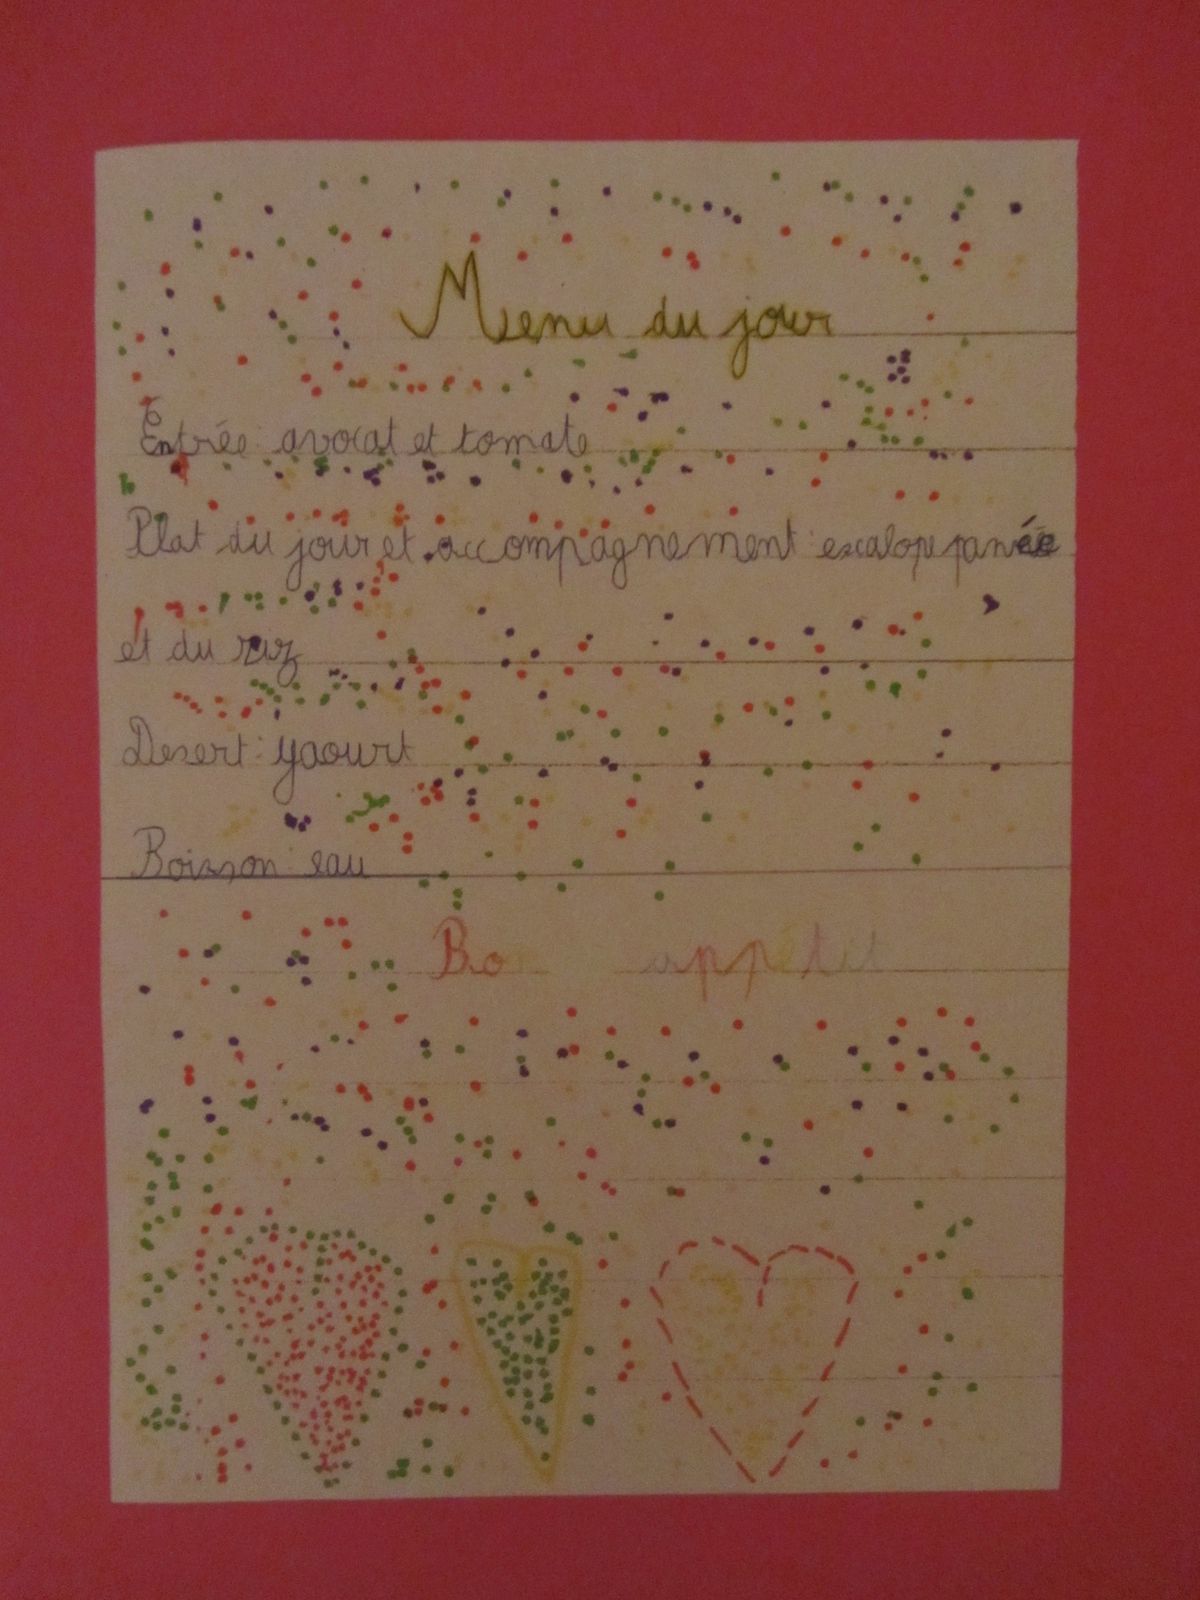 Menu du jour
Entrée : avocat et tomate
Plat du jour et accompagnement : escalope panée
et du riz
Desert : yaourt
Boisson : eau
Bo appétit